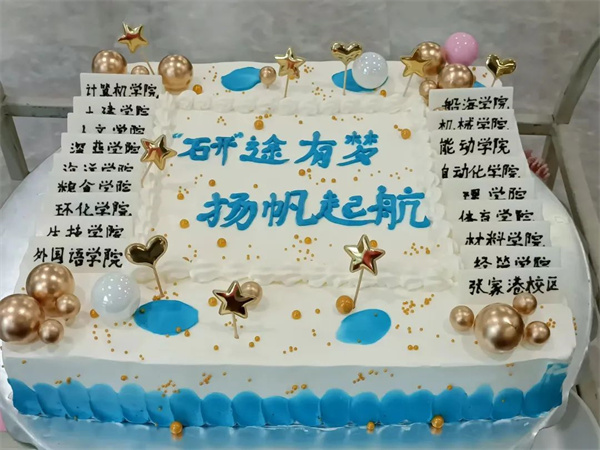 "研"途有梦
扬帆起航
计算机学院
土建学院
人文学院
深蓝学院
海洋学院
粮食学院
环化学院
生技学院
外国语学院
船海学院
机械学院
能动学院
自动化学院
理学院
体育学院
材料学院
经管学院
张家港校区